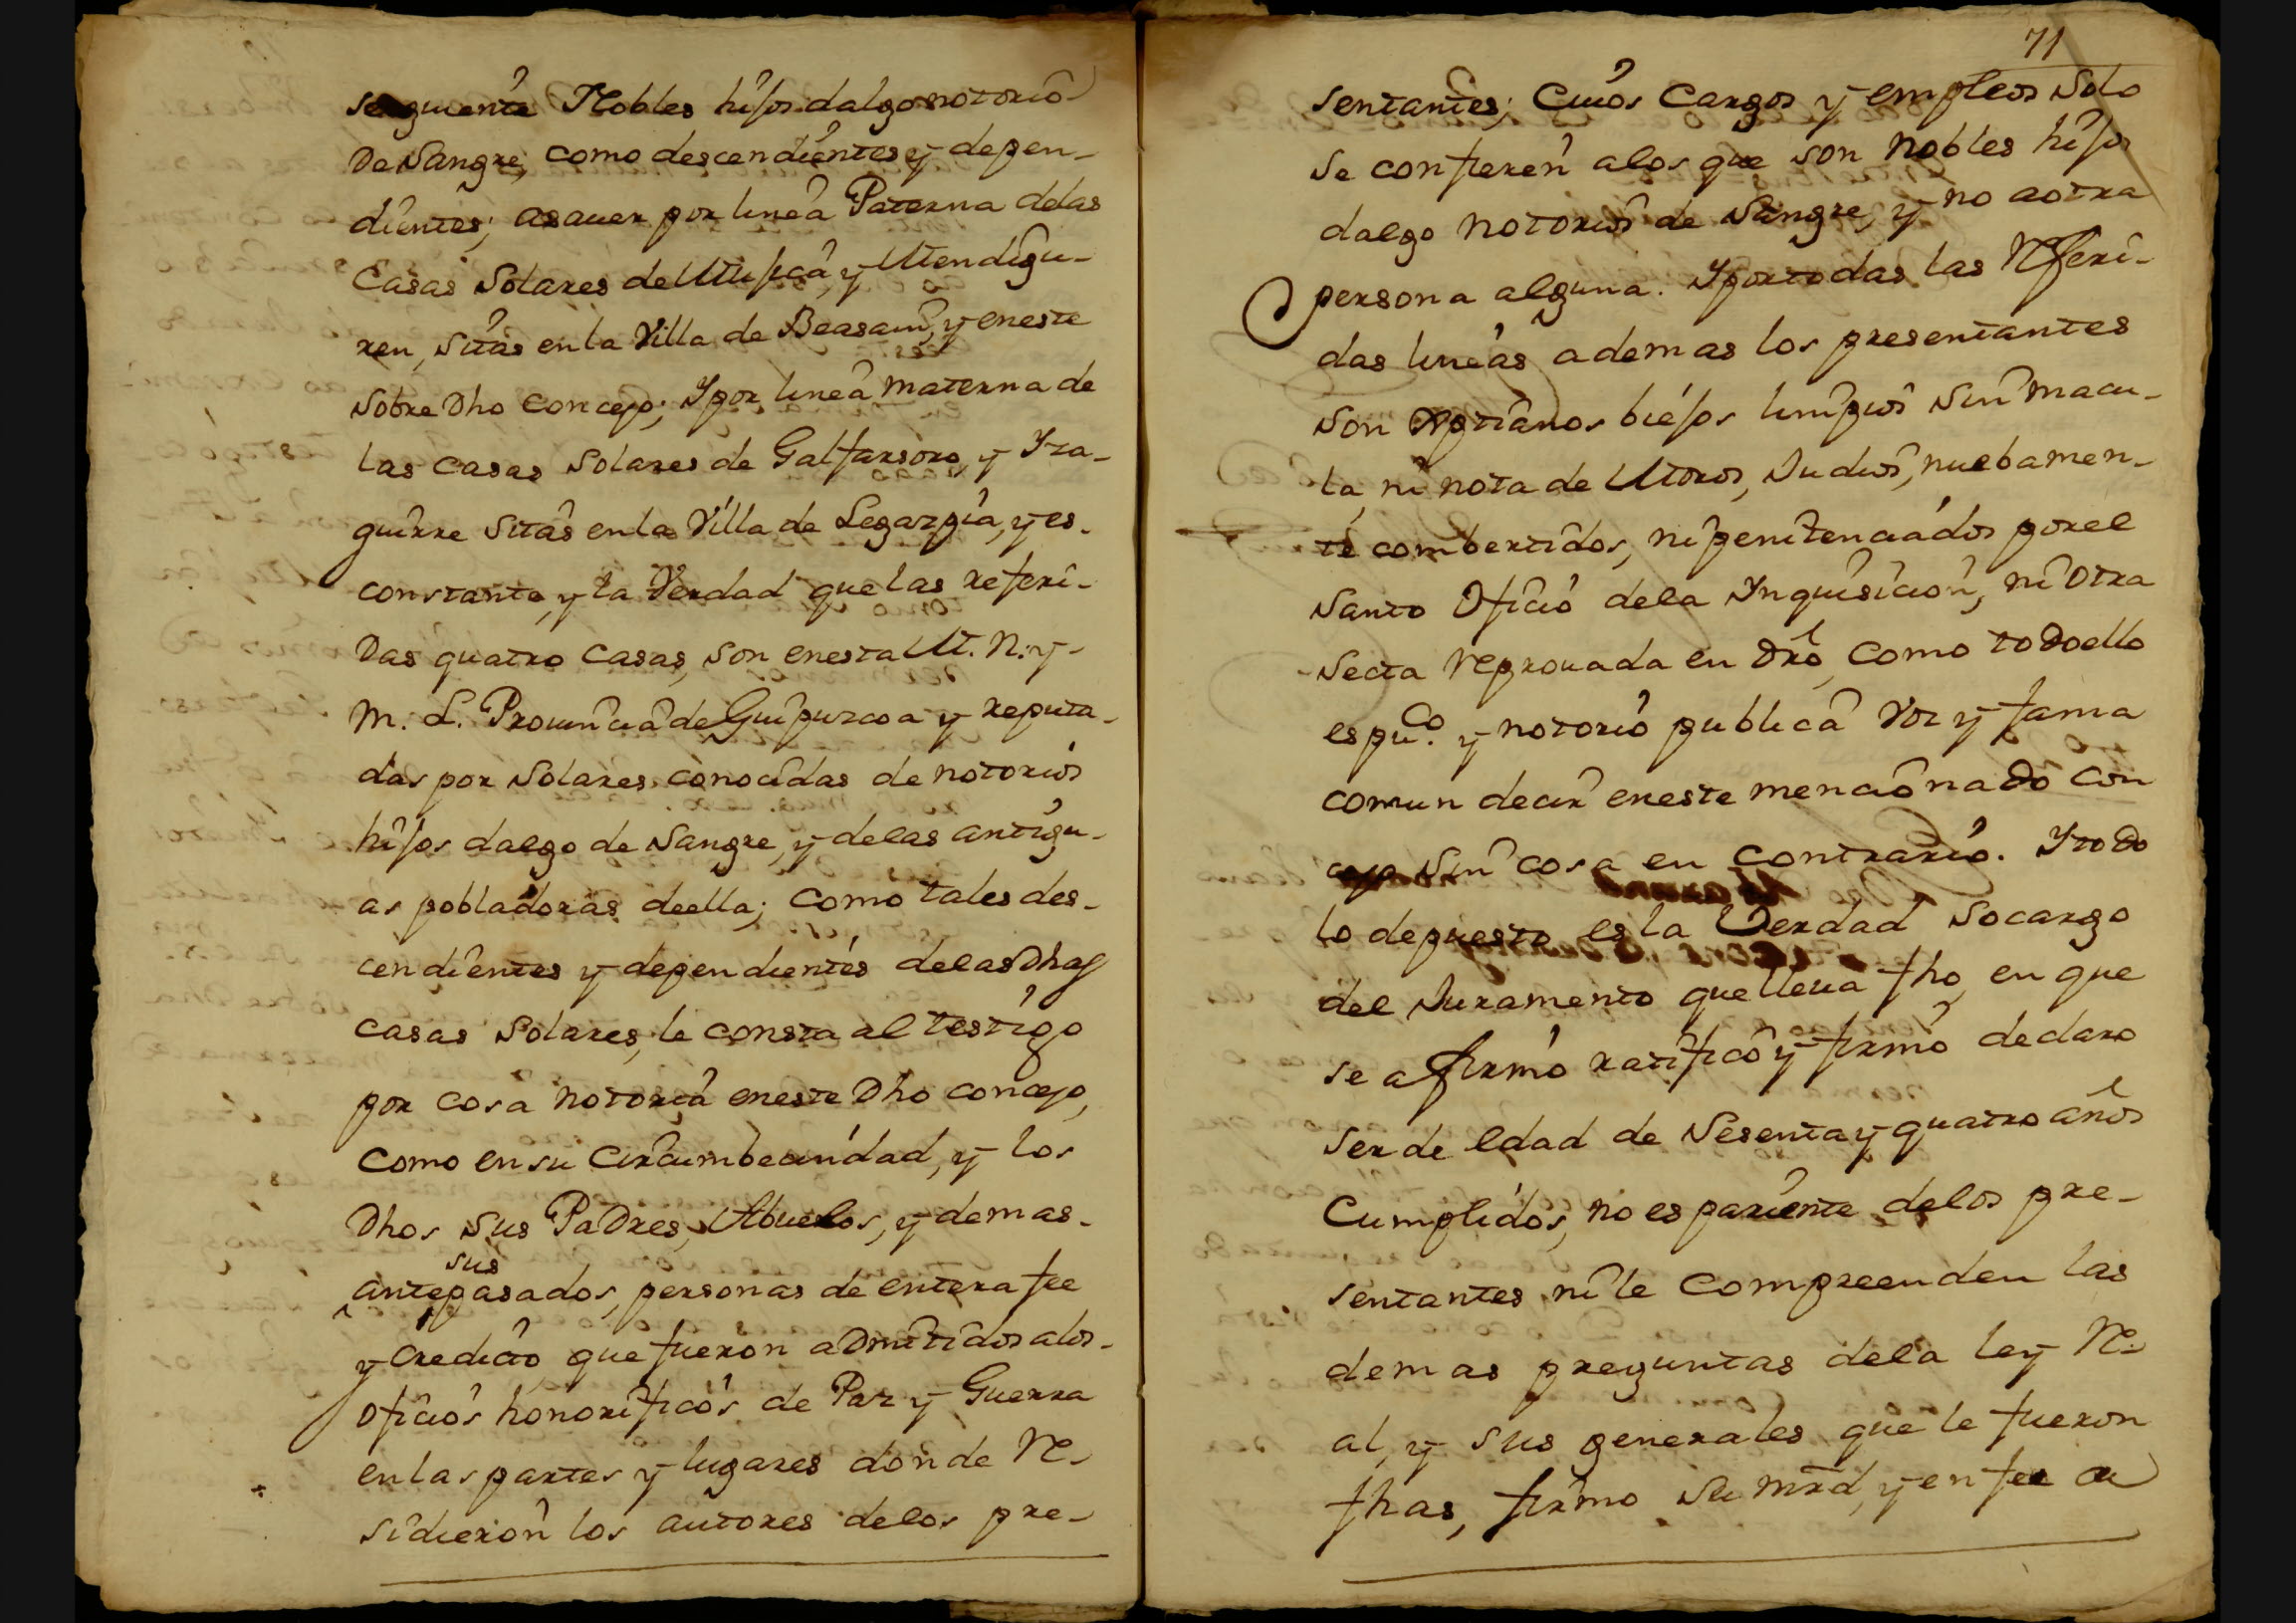 seguente Nobles hijos dalgo notorio
De Sangre, como descendientes y depen-
dientes; asauer por linea Paterna delas
Casas Solares de Mujica, y Mendigu-
ren, sitas en la Villa de Beasain, y eneste
sobre Dho concejo; Y por linea materna de
las casas Solares de Galfarsoro, y Yza-
guirre sitas en la Villa de Legazpia, y es
constante, y la Verdad que las referi-
Das quatro casas, son enesta M. N. y
M. L. Prouincia de Guipuzcoa y reputa-
das por Solares conocidas de notorios
hijos dalgo de Sangre, y delas antigu-
as pobladoras deella; como tales des-
cendientes y dependientes delas Dhas
casas Solares, le consta al testigo
por cosa notoria eneste Dho concejo,
como en su circumbecindad, y los
Dhos sus PaDres, Abuelos, y demas
sus
antepasados, personas de entera fee
y credito, que fueron aDmitidos alos
oficios honorificos de Paz y Guerra
en las partes y lugares donde Re-
sidieron los autores delos pre-
71
sentantes; Cuios Cargos y empleos Solo
se confieren alos que son Nobles hijos
dalgo Notorios de Sangre, y no aotra
persona alguna. Y portodas las Referi-
das lineas ademas los presentantes
son Xptianos biejos limpios sin macu-
la, ni nota de Moros, Judios, nuebamen-
te combertidos, ni penitenciados porel
Santo Oficio dela Ynquisicion, ni Otra
Secta reprouada en Dro, como toDoello
es puco. y notorio publica Voz y fama
comun decir eneste mencionaDo con
cejo sin cosa en contrario. Y todo
lo depuesto es la Verdad Socargo
del Juramento que lleua fho, en que
se afirmo ratifico y firmo declaro
ser de edad de Sesenta y quatro años
Cumplidos, no es pariente delos pre-
sentantes ni le compreenden las
demas preguntas dela ley Re-
al, y sus generales que le fueron
fhas, firmo Su mrd, y en fee